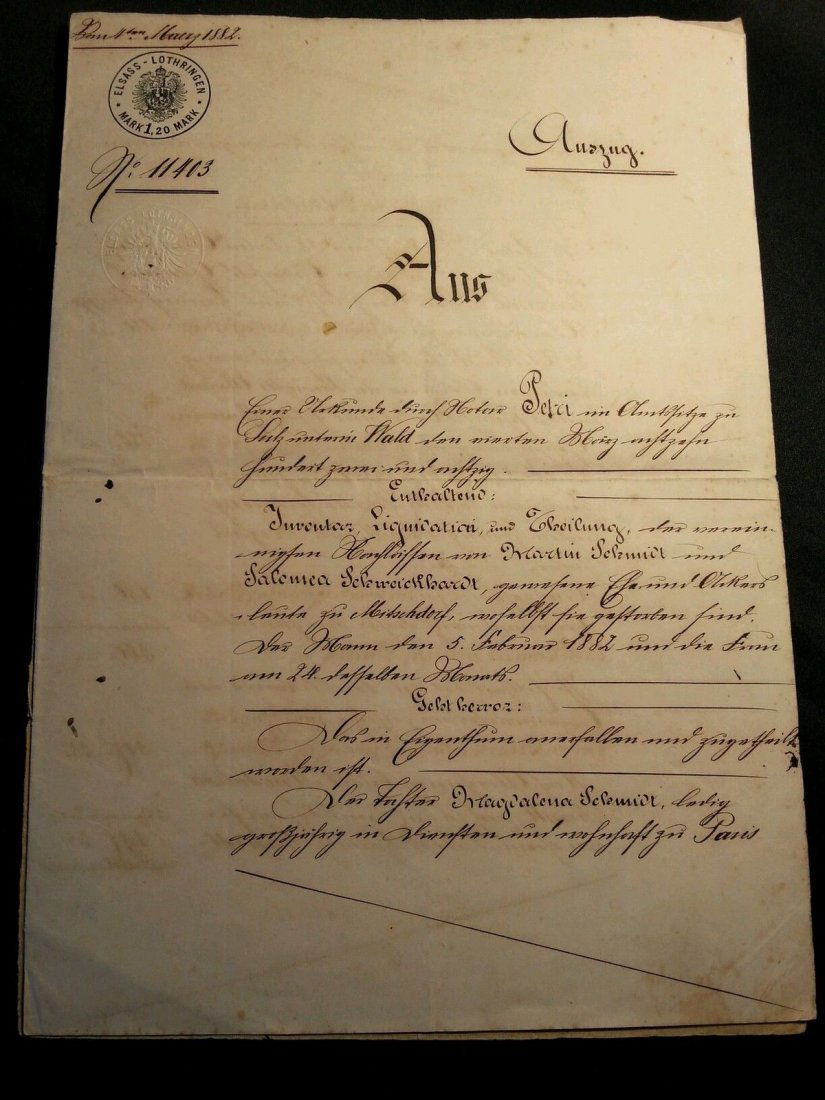 Vom 4ten Maerz 1882.
ELSASS-LOTHRINGEN
MARK 1,20 MARK
No. 11403
Auszug.
Aus
Einer Urkunde durch Notar Petri im Amtssitze zu
Sulz unterm Wald den vierten März achtzehn
hundert zwei und achtzig.
Enthaltend:
Inventar, Liquidation, und Theilung, der verei-
nigten Nachlassen von Martin Schmidt und
Salomea Schweickhardt, gewesene Ehe- und Ackers
leute zu Mitschdorf, woselbst sie gestorben sind.
Der Mann den 5. Februar 1882 und die Frau
am 24. desselben Monats.
Geht hervor:
Das in Eigenthum anerfallen und zugetheilt
worden ist.
Der Tochter Magdalena Schmidt, ledig
großjährig in Diensten und wohnhaft zu Paris